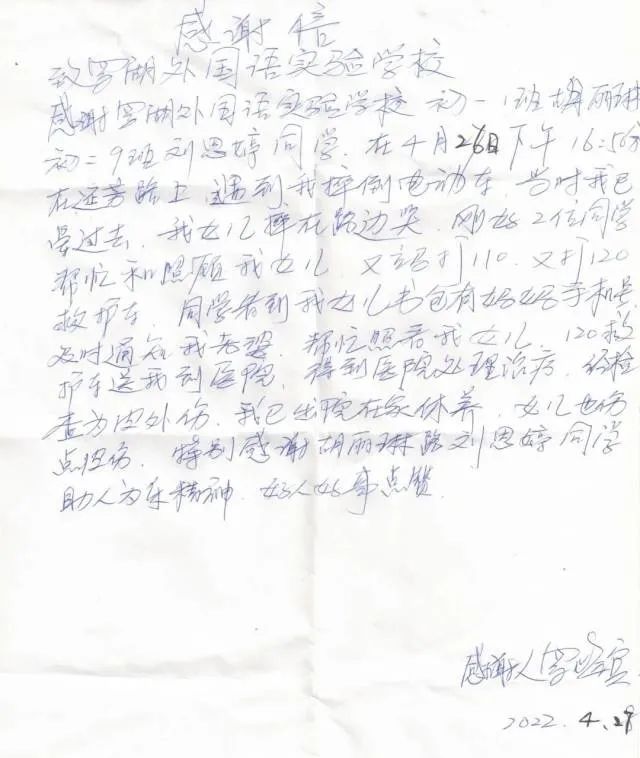 感谢信
致罗湖外国语实验学校
感谢罗湖外国语实验学校 初一1班胡丽琳
初二9班刘恩婷同学、在4月26日下午16:50分
在路上 遇到我摔倒电动车、当时我已
晕过去、我女儿摔在路边哭、刚好2位同学
帮忙和照顾我女儿 又打110、又打120
救护车、同学看到我女儿书包有妈妈手机号
及时通知我老婆、帮忙照看我女儿、120救
护车送我到医院、得到医院处理治疗、经检
查为内外伤、我已出院在家休养、女儿也伤
点、特别感谢胡丽琳 刘恩婷同学
助人为乐精神、好人好事点赞、
感谢人 罗
2022.4.29